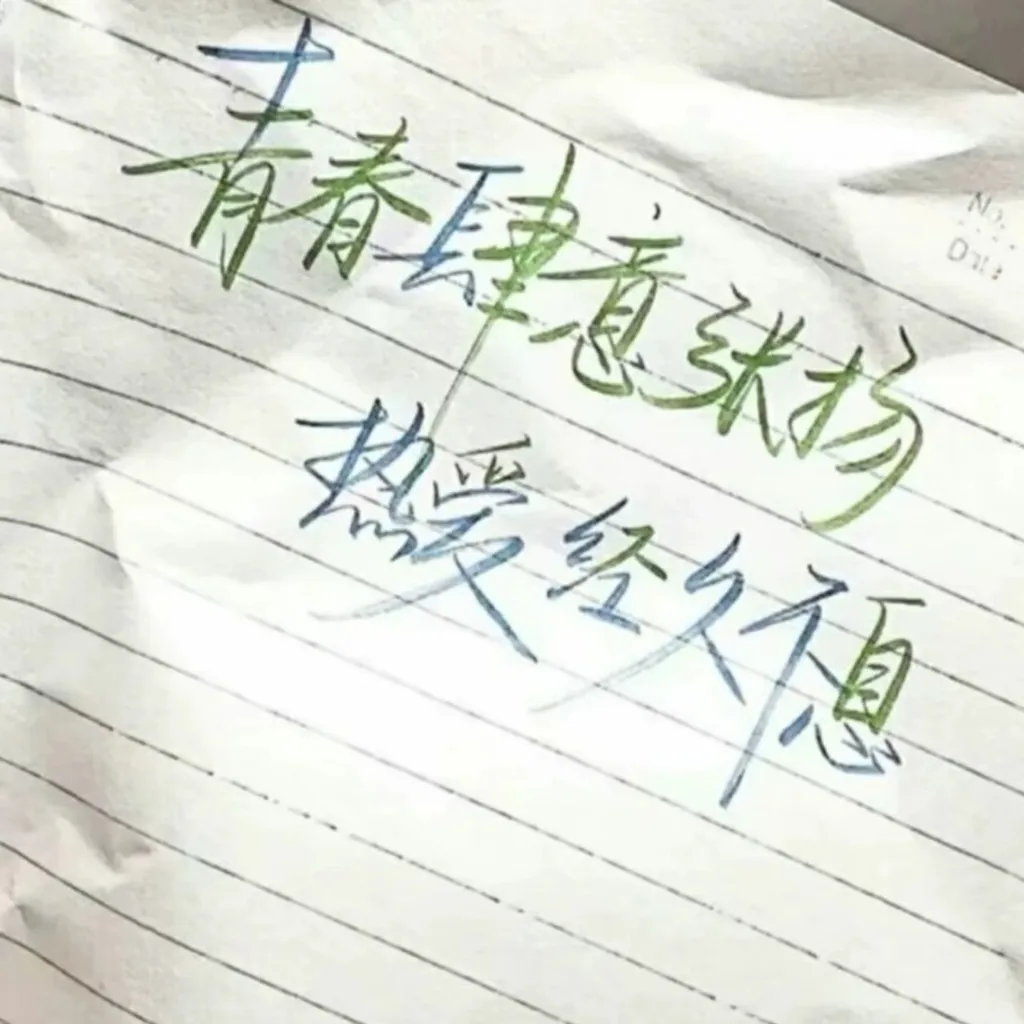 青春肆意张扬
热爱经久不息
No.
Date